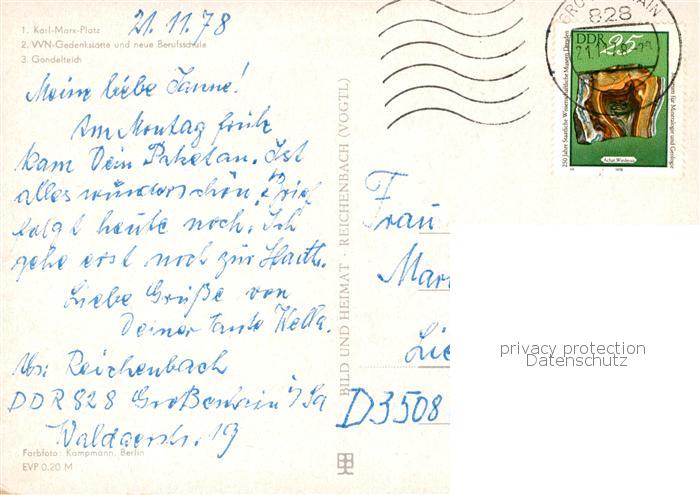 21.11.78
1. Karl-Marx-Platz
2. VVN-Gedenkstätte und neue Berufsschule
3. Gondelteich
Meine liebe Sanne!
Am Montag früh
kam Dein Paket an. Ist
alles wunderschön, Brief
folgt heute noch. Ich
gehe erst noch zur
Liebe Grüße von
Deiner Tante Wella.
Abs: Reichenbach
DDR 828 Großenhain i/Sa
19
Farbfoto: Kampmann, Berlin
EVP 0.20 M
BILD UND HEIMAT · REICHENBACH (VOGTL)
828
21.11.78
DDR 25
250 Jahre Staatliche Wissenschaftliche Museen Dresden
für Mineralogie und Geologie
Achat, Wiederau
1978
Frau
Mar
Lie
D3508
privacy protection
Datenschutz